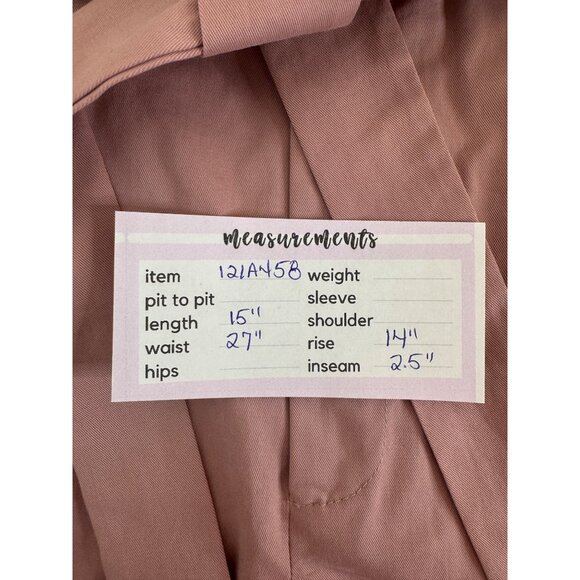 measurements
item 121A458 weight
pit to pit sleeve
length 15" shoulder
waist 27" rise 14"
hips inseam 2.5"